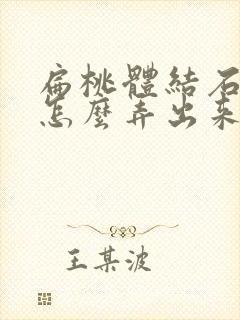 扁桃體結石
怎麼弄出來
王某波